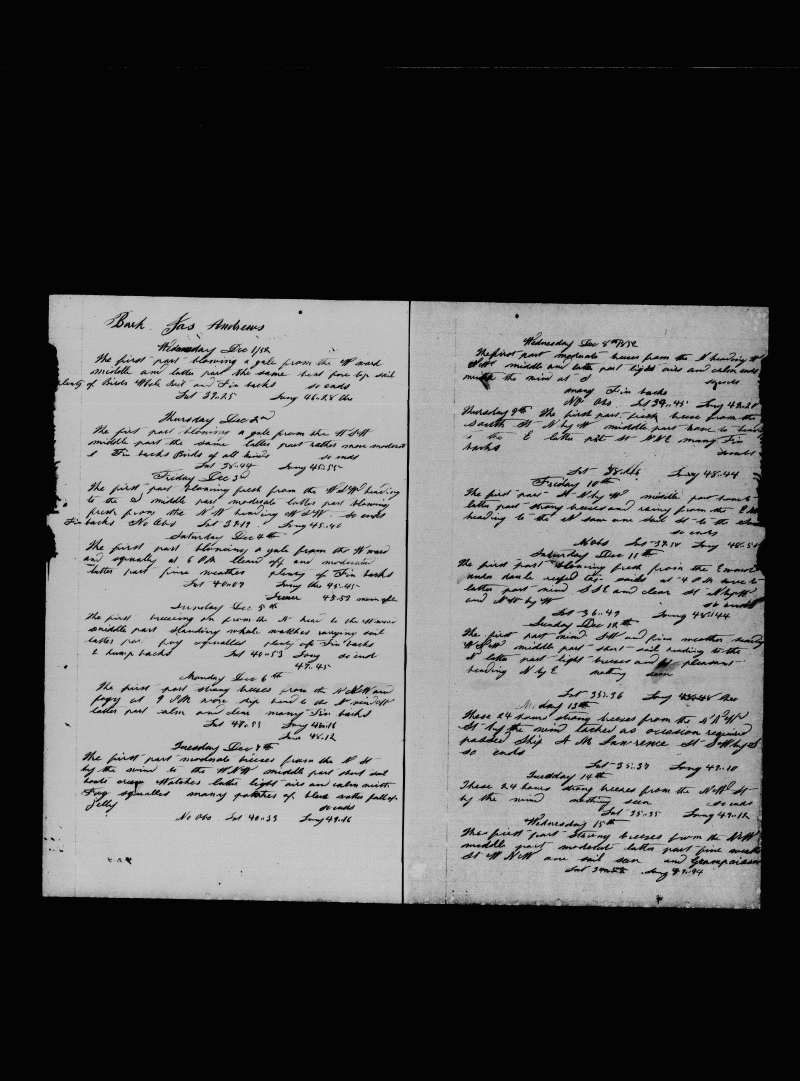 Bark Jas Andrews
Wednesday Dec 1/52
The first part blowing a gale from the W ward
middle and latter part the same bent fore top sail
plenty of Birds Whale Brit and Fin backs so ends
Lat 39..25 Long 46-28 Obs
Thursday Dec 2nd
The first part blowing a gale from the WSW
middle part the same latter part rather more moderate
Fin backs Birds of all kinds so ends
Lat 38..44 Long 45-55
Friday Dec 3d
The first part blowing fresh from the WSW heading
to the S middle part moderate latter part blowing
fresh from the NW heading WSW so ends
Fin backs No Obs Lat 39 19 Long 45-40
Saturday Dec 4th
The first part blowing a gale from the W ward
and squally at 6 PM Cleard off and moderate
latter part fine weather plenty of Fin backs
Lat 40..09 Long Obs 45-45
43-52
Sunday Dec 5th
The first breezing on from the N
middle part standing whale watches carrying sail
latter part fog squalls plenty of Fin backs
& hump backs Lat 40..53 Long so ends
44..45
Monday Dec 6th
The first part strong breezes from the
fogy at 9 PM wore ship head to the N
latter part calm and clear many Fin backs
Lat 40..53 Long 48..16
48..12
Tuesday Dec 7th
The first part moderate breezes from the N St
by the wind to the WNW middle part short sail
boats crew Watches latter light airs and calm with
Fog squalls many patches of blue water full of
Jelly so ends
No Obs Lat 40..39 Long 49..16
Wednesday Dec 8th 1852
The first part moderate breezes from the N heading
middle and latter part light airs and calm ends
the wind at S
many Fin backs
No Obs Lat 39..45 Long 49..20
Thursday 9th The first part fresh breeze from the
South St N by W middle part hove to head
to the E latter part St NNE many Fin
backs so ends
Long 48..44
Friday 10th
The first part St N by W middle part
latter part strong breezes and rainy from the E
heading to the N saw one sail St to the
so ends
No Obs Lat 37..14 Long
Saturday Dec 11th
The first part blowing fresh from the E ward
under double reefed top sails at 4 PM wore
latter part wind SSE and clear St N by W
and N St by W so ends
Lat 36..49 Long 48..44
Sunday Dec 12th
The first part wind SW and fine weather
WSW middle part short sail heading to the
N latter part light breezes and pleasant
heading N by E nothing seen
Lat 35..36 Long
Monday 13th
These 24 hours strong breezes from the
St by the wind tacked as occasion required
passed Ship A M Lawrence St SW by S
so ends
Lat 35..37 Long 49..10
Tuesday 14th
These 24 hours strong breezes from the NW St
by the wind nothing seen so ends
Lat 35..35 Long 49..12
Wednesday 15th
The first part Strong breezes from the NW
middle part moderate latter part fine
St WNW one sail seen and Grampusses
Long